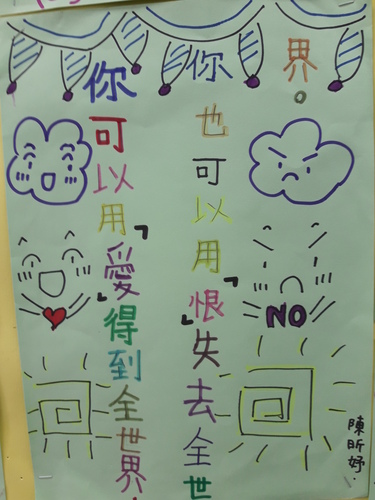 你可以用「愛」得到全世界,
你也可以用「恨」失去全世
界。
NO
陳昕妤.